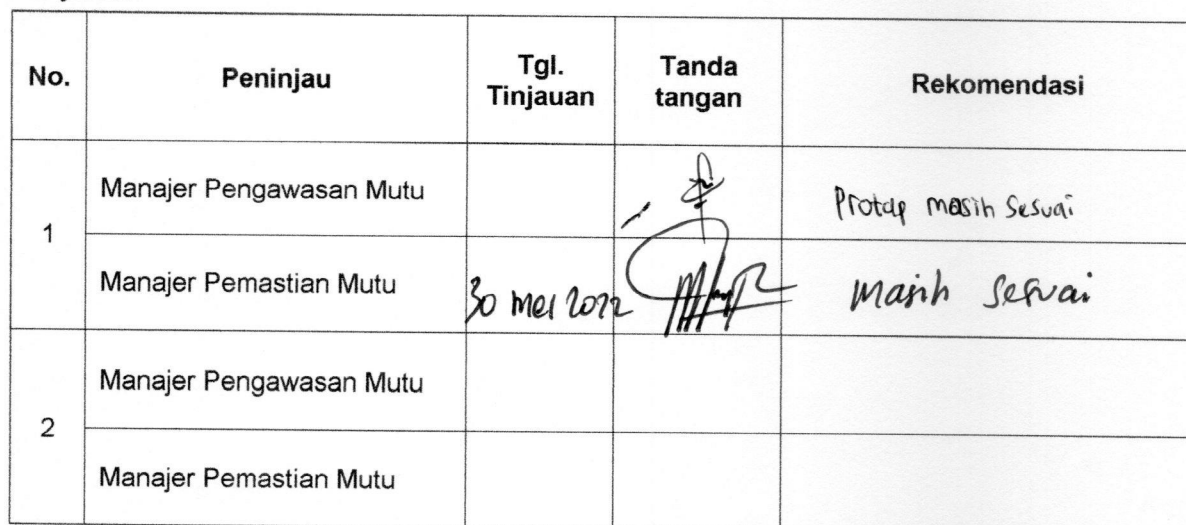 No. Peninjau Tgl. Tinjauan Tanda tangan Rekomendasi
1 Manajer Pengawasan Mutu Protap masih sesuai
Manajer Pemastian Mutu 30 mei 2022 masih sesuai
2 Manajer Pengawasan Mutu
Manajer Pemastian Mutu